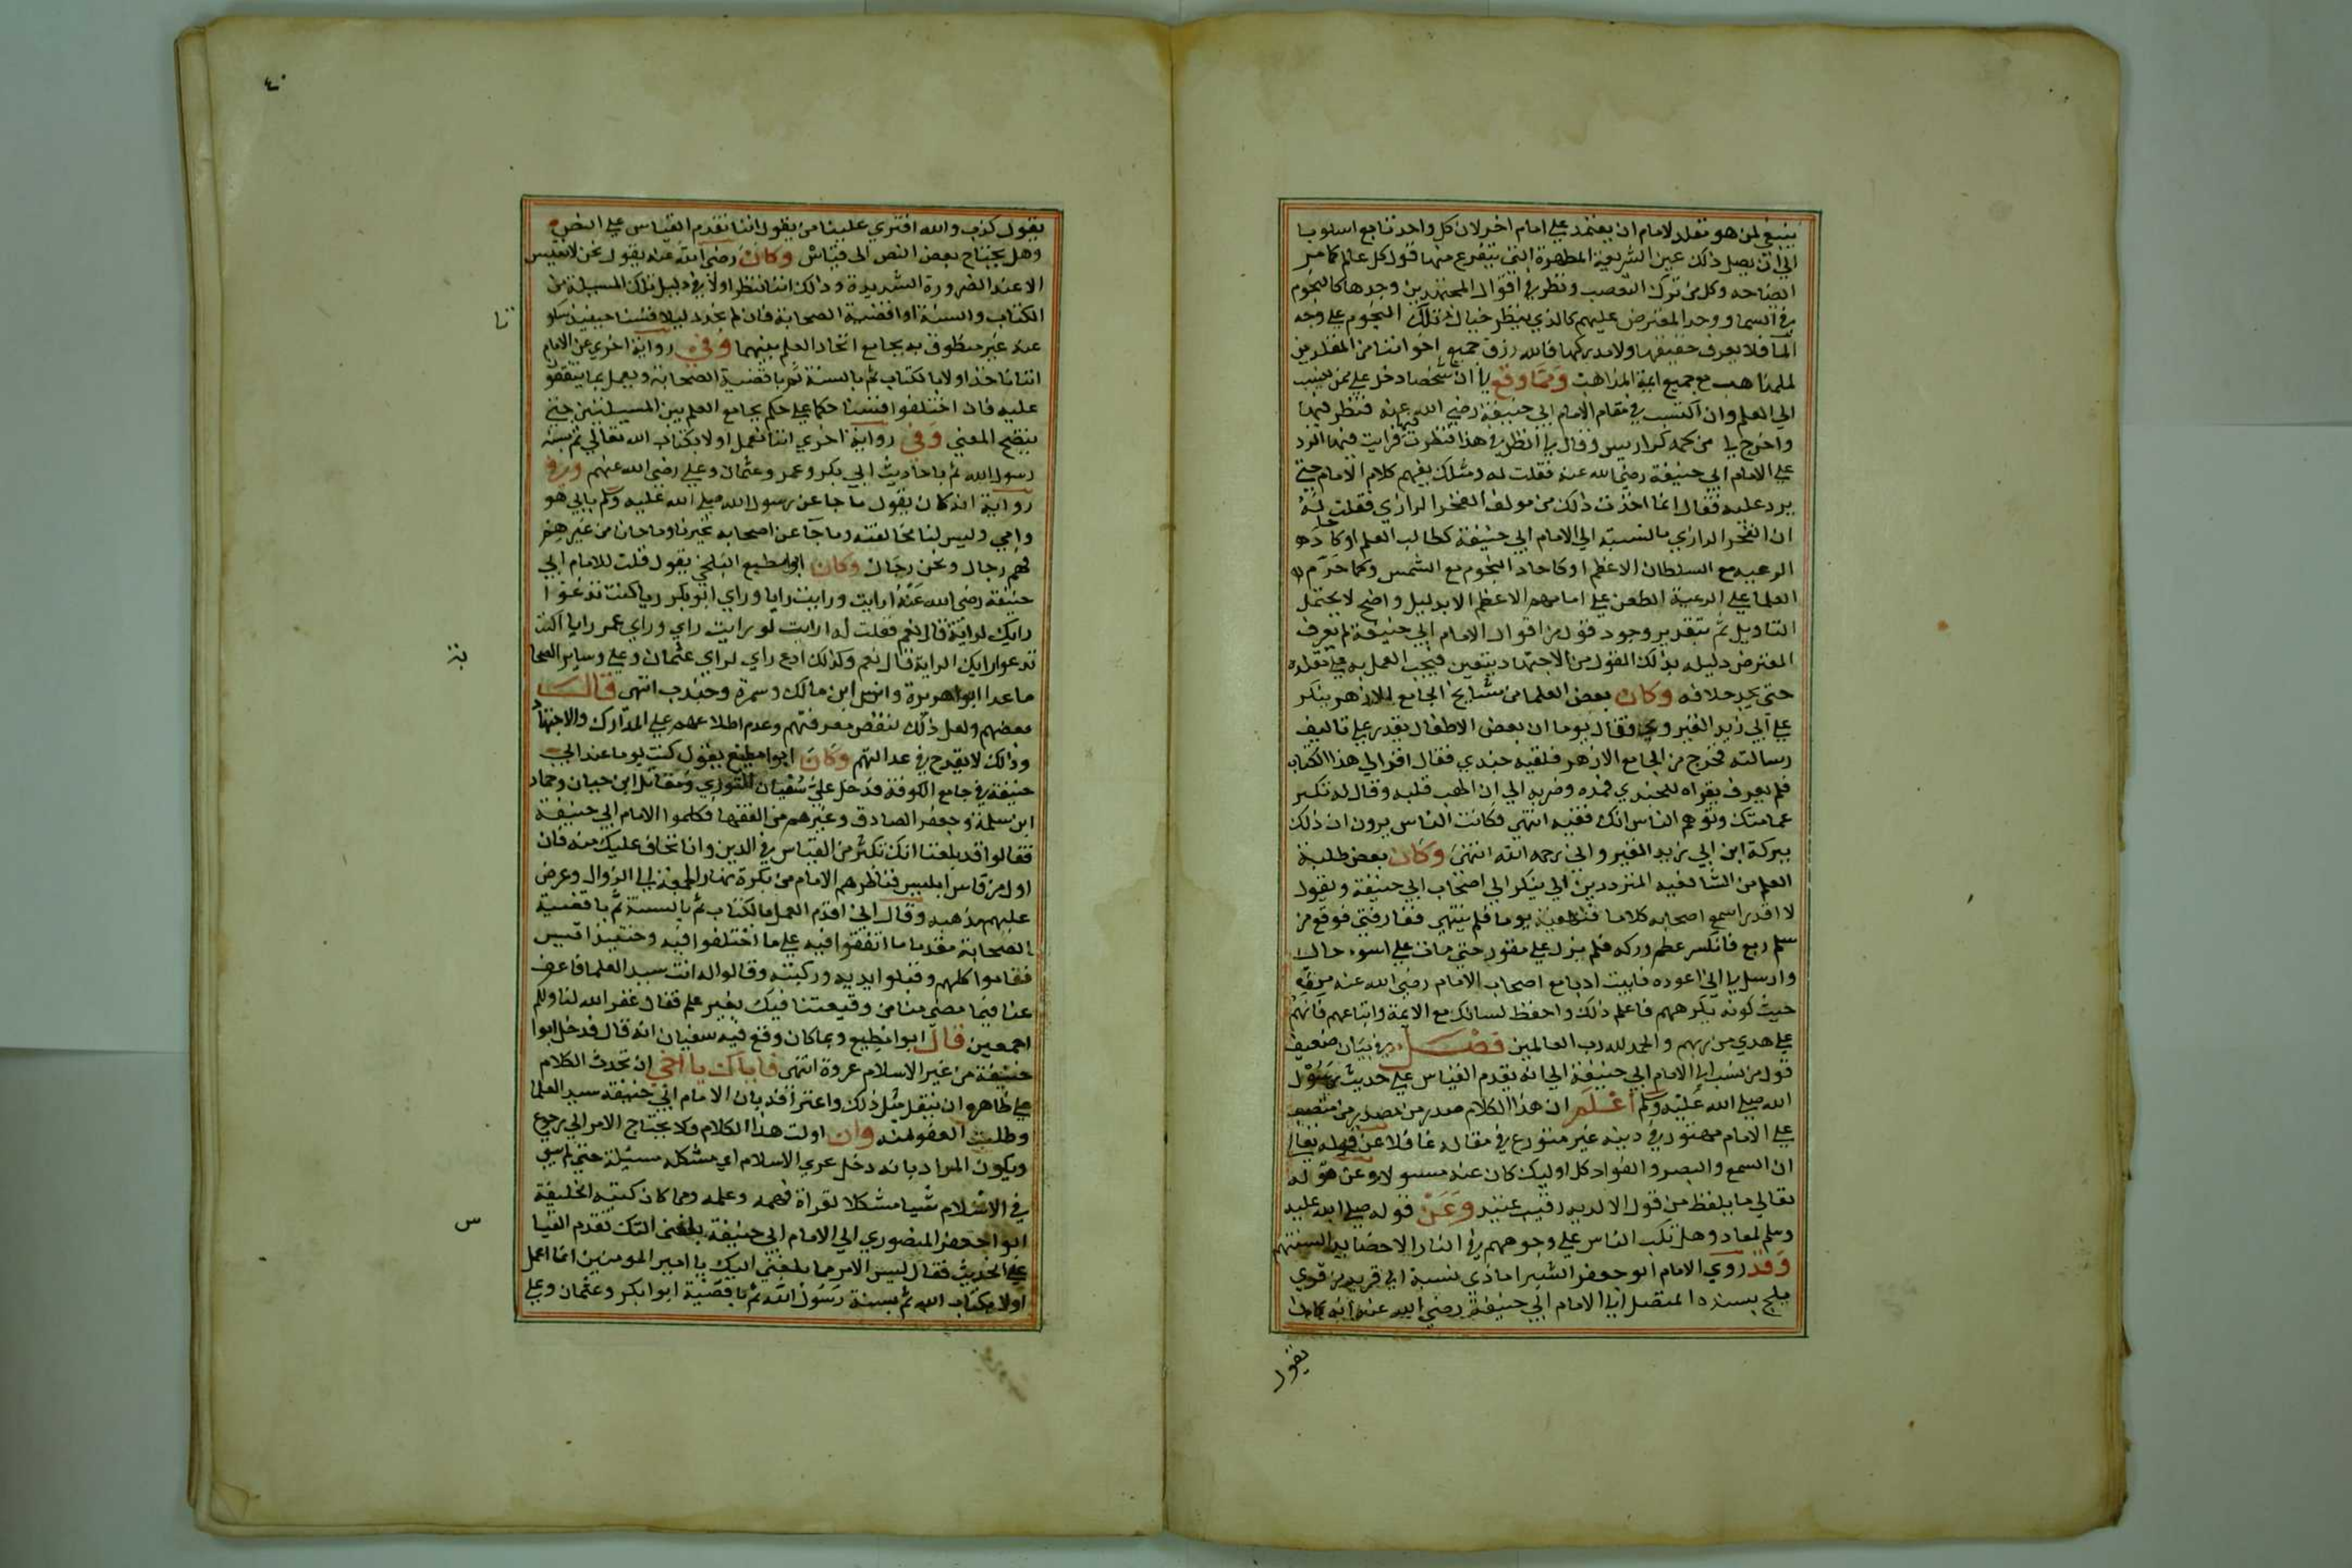 ينبغي لمن هو مقلد لامام ان يعتمد علي امام اخر لان كل واحد تابع اسلوبا
الي ان يصل ذلك عين الشريعة المطهرة التي يتفرع منها قول كل عالم كما مر
ايضاحه وكل من ترك التعصب ونظر في اقوال المجتهدين وجدها كالنجوم
في السما ووجد المعترض عليهم كالذي ينظر خيال تلك النجوم علي وجه
الما فلا يعرف حقيقتها ولا مدركها فالله رزق جميع اخواننا من المقلدين
للمذاهب مع جميع ايمة المذاهب ومما وقع لي ان شخصا دخل علي ممن ينسب
الي العلم وان اكتب في مقام الامام ابي حنيفة رضي الله عنه فنظر فيها
واخرج لي من كمه كراريس وقال لي انظر في هذا فنظرت فيها فرايت فيها الرد
علي الامام ابي حنيفة رضي الله عنه فقلت له ومثلك يفهم كلام الامام حتي
يرد عليه فقال انما اخذت ذلك من مولف الفخر الرازي فقلت له
ان الفخر الرازي بالنسبة الي الامام ابي حنيفة كطالب العلم او كاحاد
الرعية مع السلطان الاعظم او كاحاد النجوم مع الشمس وكما حرم
العلما علي الرعية الطعن علي امامهم الاعظم الا بدليل واضح لا يحتمل
التاويل ثم بتقدير وجود قول من اقوال الامام ابي حنيفة لم يعرف
المعترض دليله بذلك القول من الاجتهاد بيقين فيجب العمل به علي مقلده
حتي يجد خلافه وكان بعض العلما من مشايخ الجامع الازهر ينكر
علي ابي زيد القيرواني فقال يوما ان بعض الاطفال يقدر علي تاليف
رسالته فخرج من الجامع الازهر فلقيه جندي فقال اقرا لي هذا الكتاب
فلم يعرف يقراه للجندي فمده وضربه الي ان الهب قلبه وقال له تكبر
عمامتك وتوهم الناس انك فقيه انتهي فكانت الناس يرون ان ذلك
ببركة ابن ابي زيد القيرواني رحمه الله انتهي وكان بعض طلبة
العلم من الشافعيه المترددين الي ينكر الي اصحاب ابي حنيفة ويقول
لا اقدر اسمع لاصحابه كلاما فنهيته يوما فلم ينتهي ففارقني فوقع من
سلم ربع فانكسر عظم وركه فلم يزل علي مقوره حتي مات علي اسوء حال
وارسل لي اني اعوده فابيت ادبا مع اصحاب الامام رضي الله عنه من
حيث كونه يكرههم فاعلم ذلك واحفظ لسانك مع الايمة واتباعهم فانهم
علي هدي من ربهم والحمد لله رب العالمين فصل في بيان ضعيف
قول من نسب الي الامام ابي حنيفة الي انه يقدم القياس علي حديث رسول
الله صلي الله عليه وسلم اعلم ان هذا الكلام صدر من متعصب
علي الامام متهور في دينه غير متورع في مقاله غافلا عن قوله تعالي
ان السمع والبصر والفواد كل اوليك كان عنه مسولا وعن قوله
تعالي ما يلفظ من قول الا لديه رقيب عتيد وعن قوله صلي الله عليه
وسلم لمعاد وهل تكب الناس علي وجوههم في النار الا حصايد السنتهم
وقد روي الامام ابو جعفر الشيراماذي نسبة الي قرية من قري
بلخ بسنده المتصل الي الامام ابي حنيفة رضي الله عنه انه كان
يقول
٤٠
يقول كذب والله افتري علينا من يقول اننا نقدم القياس علي النص
وهل يحتاج بعض النص الي قياس وكان رضي الله عنه يقول نحن لا نقيس
الا عند الضرورة الشديدة وذلك اننا ننظر اولا في دليل تلك المسيلة من
الكتاب والسنة او اقضية الصحابة فان لم نجد دليلا قسنا حينيذ مسكو
تا
عنه غير منطوق به بجامع اتحاد العلم بينهما وفي رواية اخري عن الامام
اننا ناخذ اولا بالكتاب ثم بالسنة ثم باقضية الصحابة ونعمل بما يتفقو
عليه فان اختلفوا قسنا حكما علي حكم بجامع العلم بين المسيلتين حتي
يتضح المعني وفي رواية اخري اننا نعمل اولا بكتاب الله تعالي ثم بسنة
رسول الله ثم باحاديث ابي بكر وعمر وعثمان وعلي رضي الله عنهم وفي
رواية انه كان يقول ما جا عن رسول الله صلي الله عليه وسلم بابي هو
وامي وليس لنا مخالفته وما جا عن اصحابه تخيرنا وما جا من غيرهم
فهم رجال ونحن رجال وكان ابو مطيع البلخي يقول قلت للامام ابي
حنيفة رضي الله عنه ارايت ورايت رايا وراي ابو بكر ريا كنت تدعوا
رايك لرايه قال نعم فقلت له ارايت لو رايت راي وراي عمر رايا اكنت
تدعوا رايك لرايه قال نعم وكذلك ادع راي لراي عثمان وعلي وساير الصحا
بة
ما عدا ابو هريرة وانس ابن مالك وسمرة وجندب انتهي قال
بعضهم ولعل ذلك لنقص معرفتهم وعدم اطلاعهم علي المدارك والاجتهاد
وذلك لا يقدح في عدالتهم وكان ابوا مطيع يقول كنت يوما عند ابي
حنيفة في جامع الكوفة فدخل علي سفيان الثوري ومقاتل ابن حيان وحماد
ابن سلمة وجعفر الصادق وغيرهم من الفقها فكلموا الامام ابي حنيفة
فقالوا قد بلغنا انك تكثر من القياس في الدين وانا نخاف عليك منه فان
اول من قاس ابليس فناظرهم الامام من بكرة نهار الجمعة الي الزوال وعرض
عليهم مذهبه وقال اني اقدم العمل بالكتاب ثم بالسنة ثم باقضية
الصحابة مقدما ما اتفقوا فيه علي ما اختلفوا فيه وحينيذ اقيس
فقاموا كلهم وقبلوا ايديه وركبته وقالوا له انت سيد العلما فاعف
عنا فيما مضي منا من وقيعتنا فيك بغير علم فقال غفر الله لنا ولكم
اجمعين قال ابوا مطيع ومما كان وقع فيه سفيان انه قال قد حل ابوا
حنيفة من غير الاسلام عروة انتهي فاياك يا اخي ان تحدث الكلام
علي ظاهره ان ينقل مثل ذلك واعترافه بان الامام ابي حنيفة سيد العلما
وطلب العفو منه وان اولت هذا الكلام فلا يحتاج الامر الي رجوع
ويكون المراد بانه دخل عري الاسلام اي مشكله مسيلة حتي لم يبق
في الاسلام شيا مشكلا لقراة فهمه وعلمه ومما كان كتبه الخليفة
ابوا جعفر المنصوري الي الامام ابي حنيفة بلغني انك تقدم القيا
س
علي الحديث فقال ليس الامر مما بلغني اليك يا امير المومنين انما اعمل
اولا بكتاب الله ثم بسنة رسول الله ثم باقضية ابوا بكر وعثمان وعلي